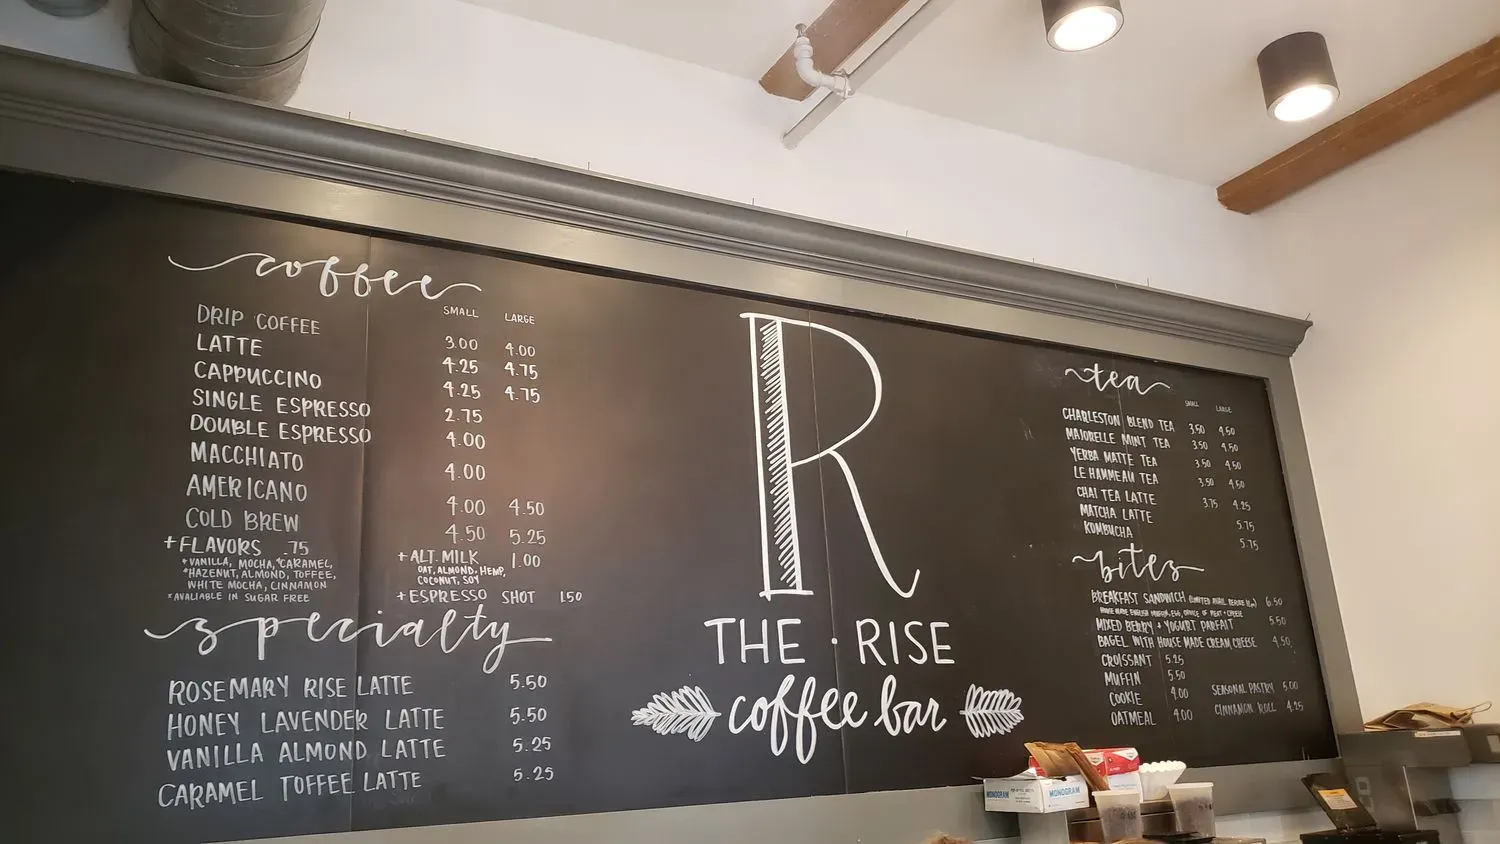 coffee
SMALL LARGE
DRIP COFFEE 3.00 4.00
LATTE 4.25 4.75
CAPPUCCINO 4.25 4.75
SINGLE ESPRESSO 2.75
DOUBLE ESPRESSO 4.00
MACCHIATO 4.00
AMERICANO 4.00 4.50
COLD BREW 4.50 5.25
+FLAVORS .75
*VANILLA, MOCHA, *CARAMEL,
*HAZENUT, ALMOND, TOFFEE,
WHITE MOCHA, CINNAMON
*AVALIABLE IN SUGAR FREE
+ALT. MILK 1.00
OAT, ALMOND, HEMP,
COCONUT, SOY
+ESPRESSO SHOT 1.50
specialty
ROSEMARY RISE LATTE 5.50
HONEY LAVENDER LATTE 5.50
VANILLA ALMOND LATTE 5.25
CARAMEL TOFFEE LATTE 5.25
R
THE · RISE
coffee bar
tea
SMALL LARGE
CHARLESTON BLEND TEA 3.50 4.50
MAJORELLE MINT TEA 3.50 4.50
YERBA MATTE TEA 3.50 4.50
LE HAMMEAU TEA 3.50 4.50
CHAI TEA LATTE 3.75 4.25
MATCHA LATTE 5.75
KOMBUCHA 5.75
bites
BREAKFAST SANDWICH 6.50
HOUSE MADE ENGLISH MUFFIN, EGG, CHOICE OF MEAT + CHEESE
MIXED BERRY + YOGURT PARFAIT 5.50
BAGEL WITH HOUSE MADE CREAM CHEESE 4.50
CROISSANT 5.25
MUFFIN 5.50
COOKIE 4.00 SEASONAL PASTRY 5.00
OATMEAL 4.00 CINNAMON ROLL 4.25
MONOGRAM MONOGRAM